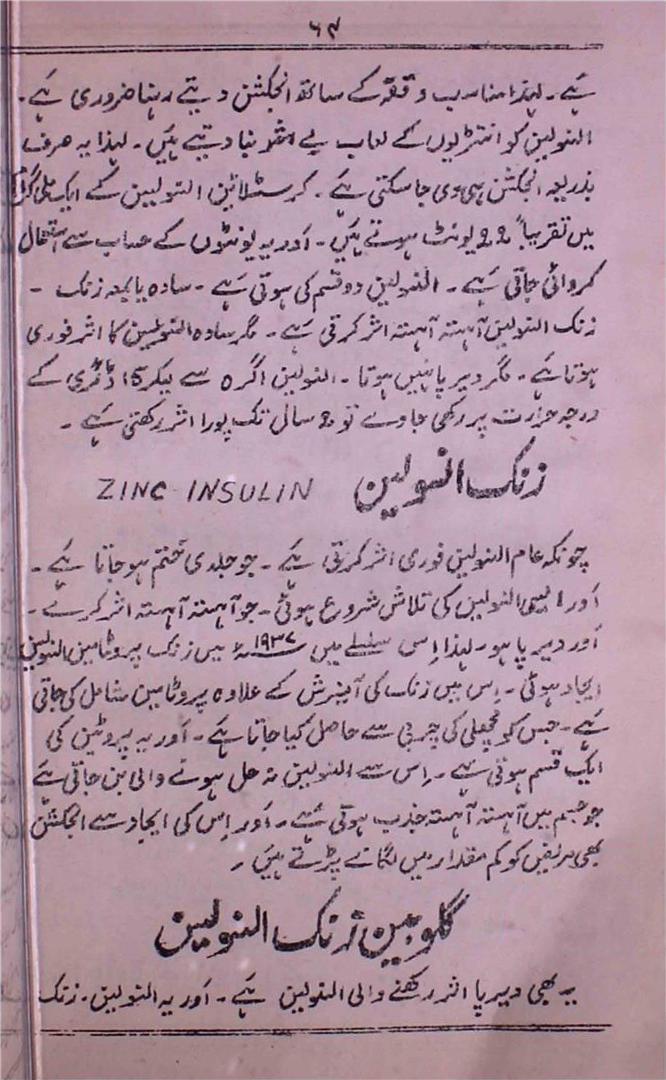 ۶۹
ہے ۔ لہذا مناسب وقفہ کے ساتھ انجکشن دیتے رہنا ضروری ہے ۔
انسولین کو انتڑیوں کے لعاب بے اثر بنا دیتے ہیں ۔ لہذا یہ صرف
بذریعہ انجکشن ہی دی جا سکتی ہے ۔ کرسٹلائین انسولین کے ایک ملی گرام
میں تقریباً ۲۲ یونٹ ہوتے ہیں ۔ اور یہ یونٹوں کے حساب سے استعمال
کروائی جاتی ہے ۔ انسولین دو قسم کی ہوتی ہے ۔ سادہ یا بمعہ زنک ۔
زنک انسولین آہستہ آہستہ اثر کرتی ہے ۔ مگر سادہ انسولین کا اثر فوری
ہوتا ہے ۔ مگر دیرپا نہیں ہوتا ۔ انسولین اگر ۵ سے لیکر 15 ڈگری کے
درجہ حرارت پر رکھی جاوے تو ۲ سال تک پورا اثر رکھتی ہے ۔
زنک انسولین ZINC INSULIN
چونکہ عام انسولین فوری اثر کرتی ہے ۔ جو جلدی ختم ہو جاتا ہے ۔
اور ایسی انسولین کی تلاش شروع ہوئی ۔ جو آہستہ آہستہ اثر کرے ۔
اور دیرپا ہو ۔ لہذا اِسی سلسلے میں ۱۹۳۷ء میں زنک پروٹامین انسولین
ایجاد ہوئی ۔ اِس میں زنک کی آمیزش کے علاوہ پروٹامین شامل کی جاتی
ہے ۔ جس کو مچھلی کی چربی سے حاصل کیا جاتا ہے ۔ اور یہ پروٹین کی
ایک قسم ہوتی ہے ۔ اِس سے انسولین نہ حل ہونے والی بن جاتی ہے
جو جسم میں آہستہ آہستہ جذب ہوتی ہے ۔ اور اِس کی ایجاد سے انجکشن
بھی مریض کو کم مقدار میں لگانے پڑتے ہیں ۔
گلوبین زنک انسولین
یہ بھی دیرپا اثر رکھنے والی انسولین ہے ۔ اور یہ انسولین ۔ زنک